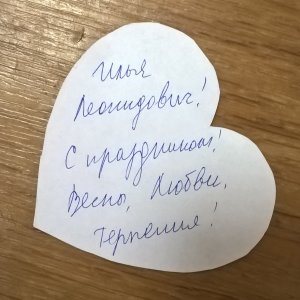 Илья
Леонидович!
С праздником!
Весны, Любви,
Терпения!